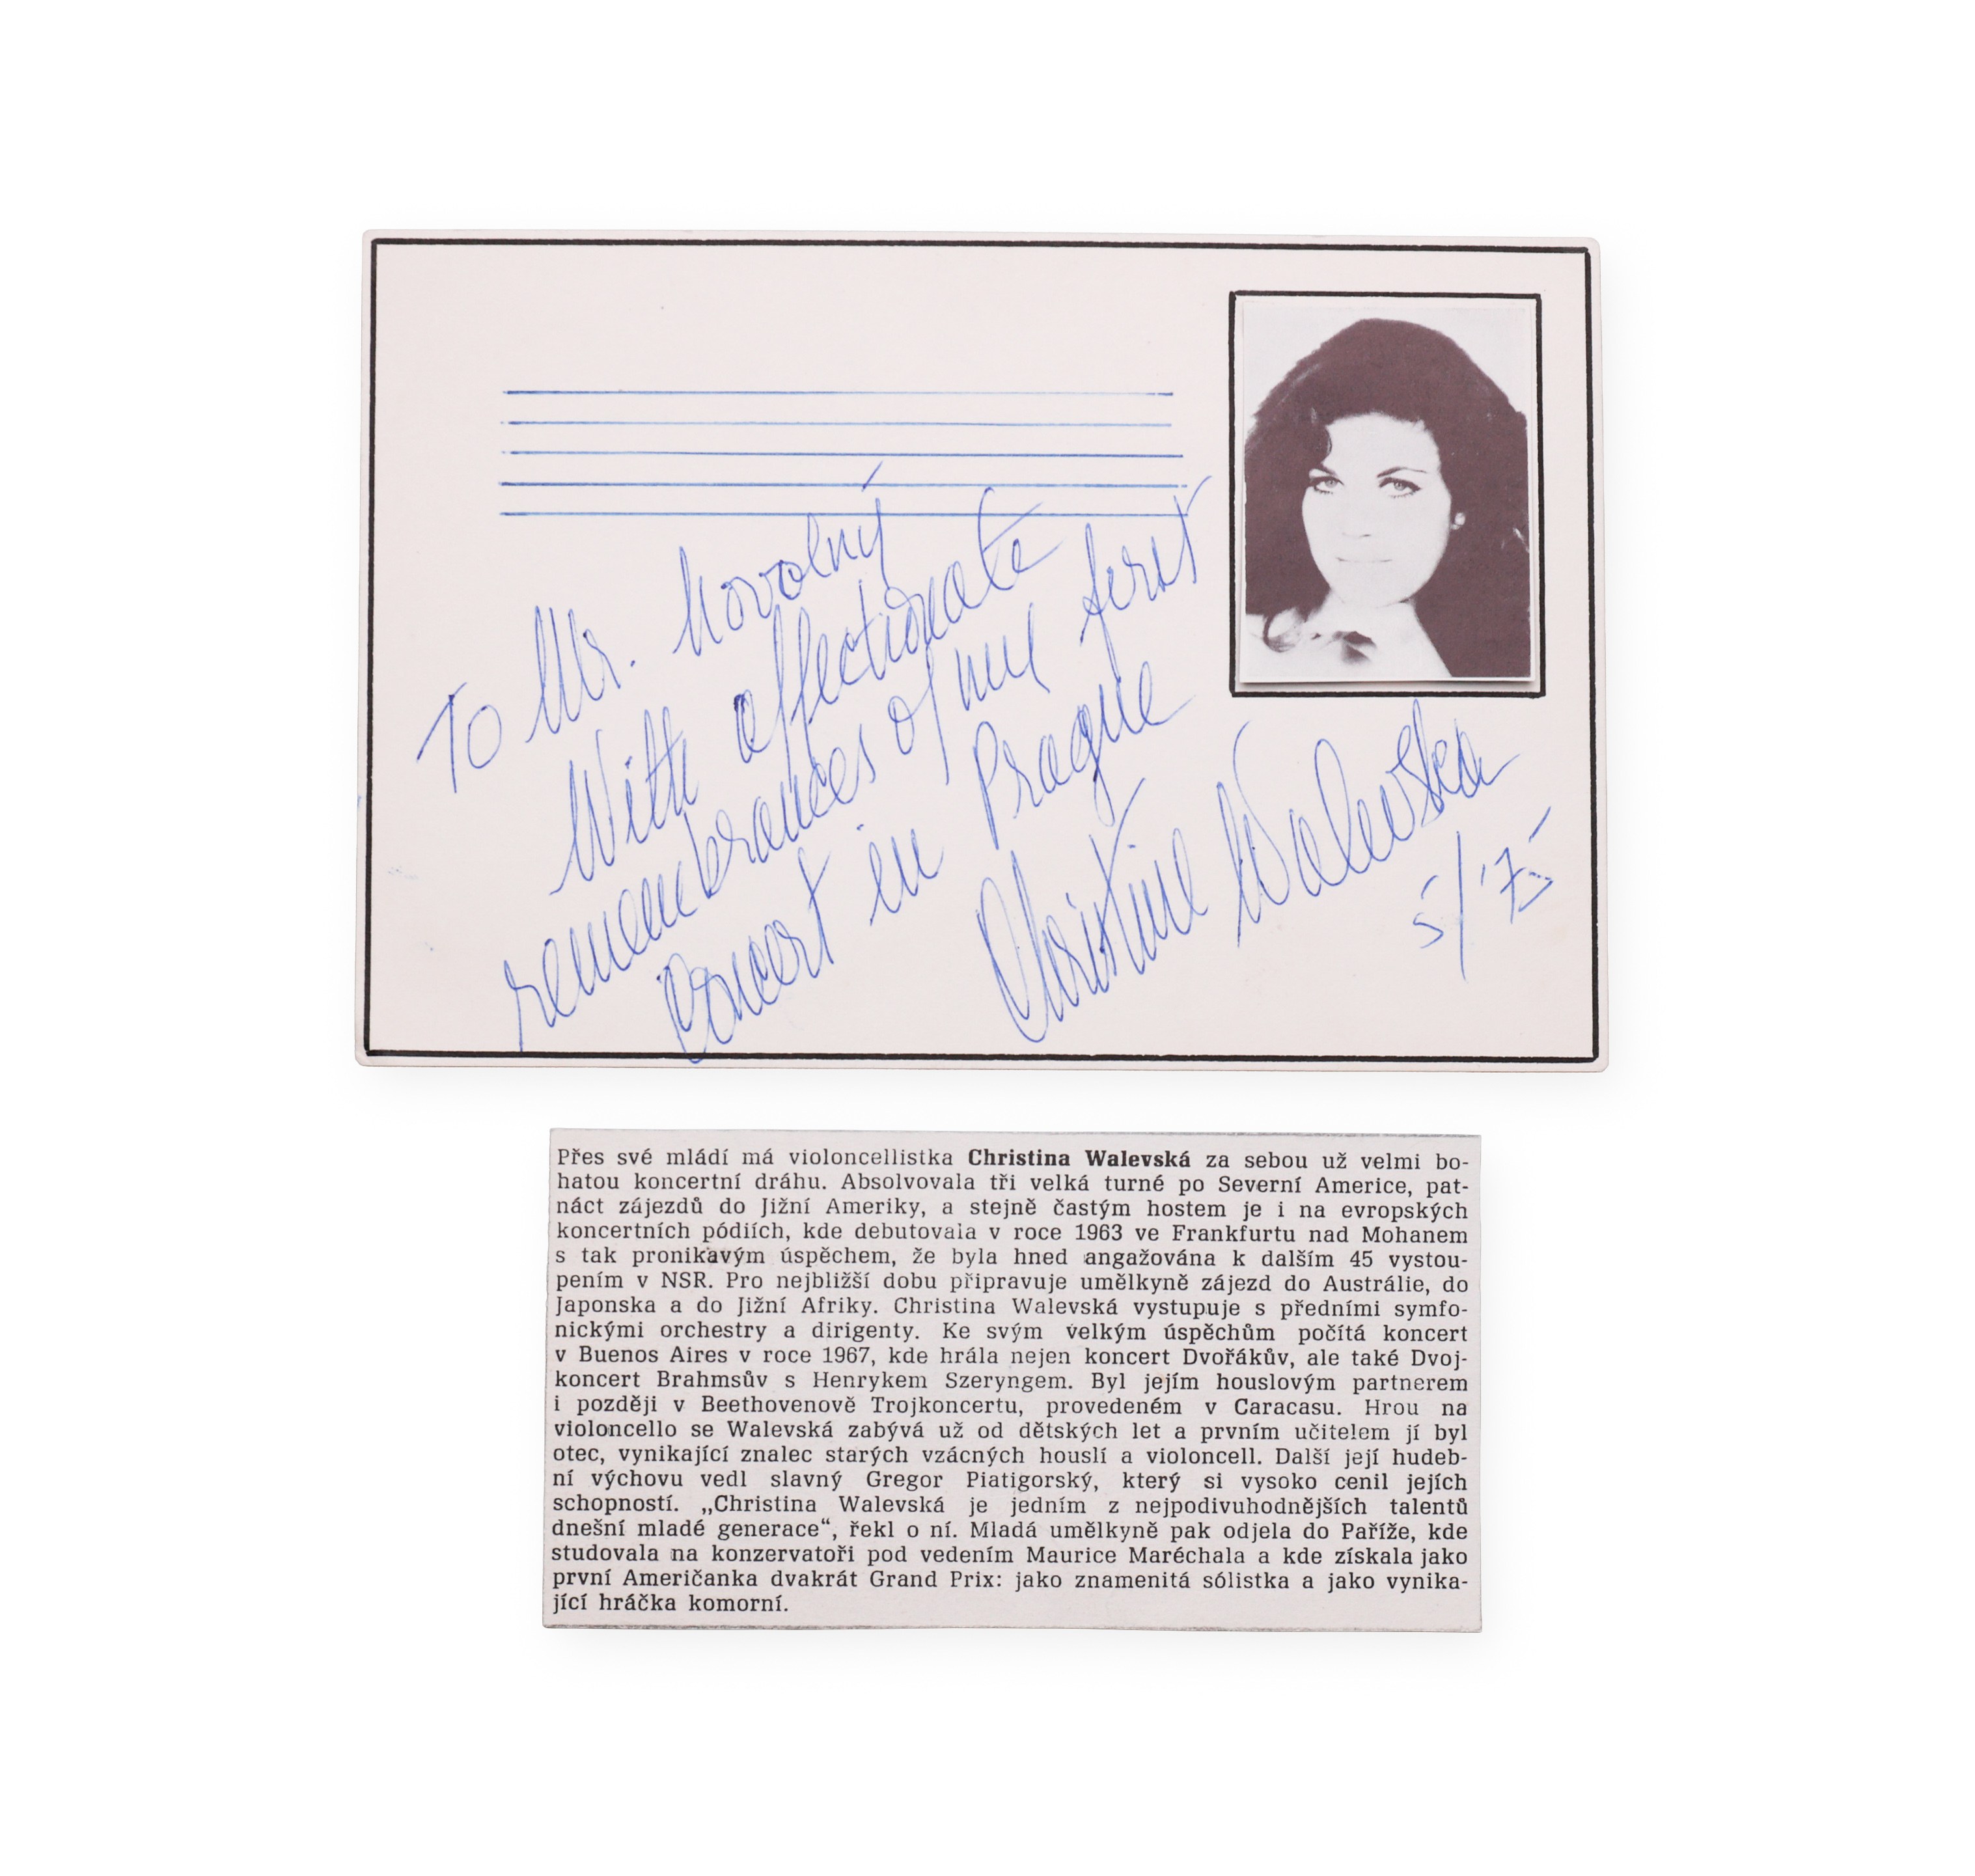 To Mr. Novotný
With affectionate
remembrances of my first
concert in Prague
Christine Walevska
5/'75
Přes své mládí má violoncellistka Christina Walevská za sebou už velmi bo-
hatou koncertní dráhu. Absolvovala tři velká turné po Severní Americe, pat-
náct zájezdů do Jižní Ameriky, a stejně častým hostem je i na evropských
koncertních pódiích, kde debutovala v roce 1963 ve Frankfurtu nad Mohanem
s tak pronikavým úspěchem, že byla hned angažována k dalším 45 vystou-
pením v NSR. Pro nejbližší dobu připravuje umělkyně zájezd do Austrálie, do
Japonska a do Jižní Afriky. Christina Walevská vystupuje s předními symfo-
nickými orchestry a dirigenty. Ke svým velkým úspěchům počítá koncert
v Buenos Aires v roce 1967, kde hrála nejen koncert Dvořákův, ale také Dvoj-
koncert Brahmsův s Henrykem Szeryngem. Byl jejím houslovým partnerem
i později v Beethovenově Trojkoncertu, provedeném v Caracasu. Hrou na
violoncello se Walevská zabývá už od dětských let a prvním učitelem jí byl
otec, vynikající znalec starých vzácných houslí a violoncell. Další její hudeb-
ní výchovu vedl slavný Gregor Piatigorský, který si vysoko cenil jejích
schopností. „Christina Walevská je jedním z nejpodivuhodnějších talentů
dnešní mladé generace“, řekl o ní. Mladá umělkyně pak odjela do Paříže, kde
studovala na konzervatoři pod vedením Maurice Maréchala a kde získala jako
první Američanka dvakrát Grand Prix: jako znamenitá sólistka a jako vynika-
jící hráčka komorní.